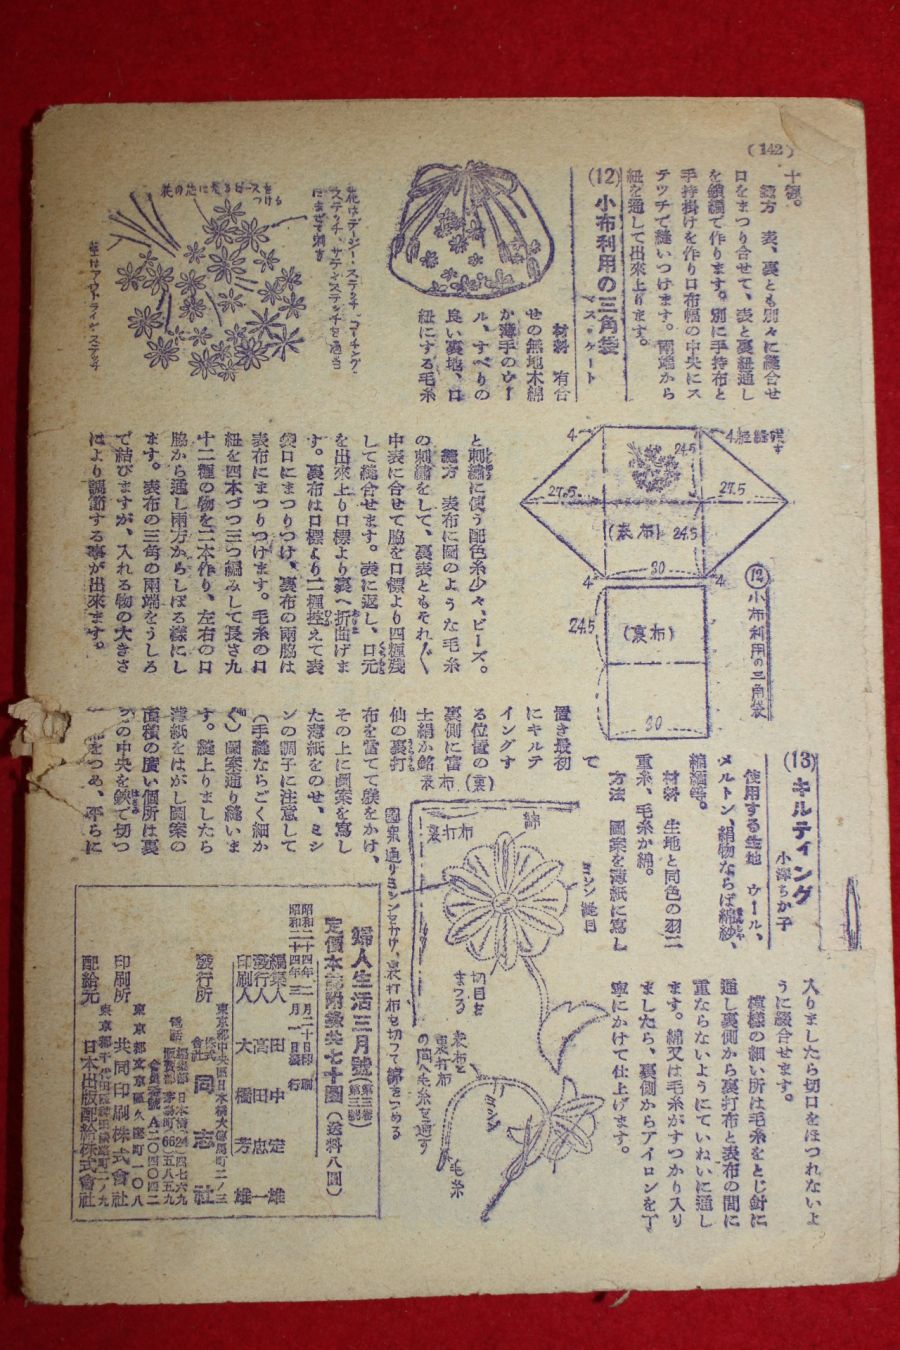 (142)
十糎。
縫方 表、裏とも別々に縫合せ
口をまつり合せて、表と裏紐通し
を鎖編で作ります。別に手持布と
手持掛けを作り口布幅の中央にス
テッチで縫いつけます。両端から
紐を通して出來上ります。
(12) 小布利用の三角袋
マス・ケート
材料 有合
せの無地木綿
か薄手のウー
ル、すべりの
良い裏地、口
紐にする毛糸
花の芯に光るビースを
つける
花はデージー・ステッチ、コーチング・
ステッチ、サテン・ステッチを適宜
にまぜて刺す
莖はアウトライン・ステッチ
と刺繍に使う配色糸少々、ビーズ。
縫方 表布に圖のような毛糸
の刺繍をして、裏表ともそれ〴〵
中表に合せて脇を口標より四糎殘
して縫合せます。表に返し、口元
を出來上り口標より裏へ折曲げま
す。裏布は口標より二糎控えて表
袋口にまつりつけ、裏布の兩脇は
表布にまつりつけます。毛糸の口
紐を四本づつ三つ編みして長さ九
十二糎の物を二本作り、左右の口
脇から通し兩方からしぼる樣にし
ます。表布の三角の兩端をうしろ
で結びますが、入れる物の大きさ
により調節する事が出來ます。
4
4
27.5
24.5
27.5
(表布)
24.5
30
4
4
24.5
(裏布)
30
⑫小布利用の三角袋
(13) キルティング
小澤ちか子
使用する生地 ウール、
メルトン、絹物ならば綿紗、
綿縮等。
材料 生地と同色の羽二
重糸、毛糸か綿。
方法 圖案を薄紙に寫し
て
置き最初
にキルテ
イングす
る位置の
裏側に富
士絹か銘
仙の裏打
布を當てて躾をかけ、
その上に圖案を寫し
た薄紙をのせ、ミシ
ンの調子に注意して
(手縫ならごく細か
く)圖案通り縫いま
す。縫上りましたら
薄紙をはがし圖案の
面積の廣い個所は裏
の中央を鋏で切つ
をつめ、平らに
(裏)
表布
裏打布
綿
ミシン縫目
切目を
まつる
表布と
裏打布
の間へ毛糸を通す
とじ針
毛糸
圖案通りミシンをかけ、裏打布を切つて綿をつめる
入りましたら切口をほつれないよ
うに縫合せます。
模樣の細い所は毛糸をとじ針に
通し裏側から裏打布と表布の間に
重ならないようにていねいに通し
ます。綿又は毛糸がすつかり入り
ましたら、裏側からアイロンを丁
寧にかけて仕上げます。
婦人生活三月號(第三巻第三號)
定價本誌附錄共七十圓(送料八圓)
昭和二十四年二月二十日印刷
昭和二十四年三月一日發行
編集人 田中定雄
發行人 高田忠一
印刷人 大橋芳雄
東京都中央區日本橋大傳馬町二ノ三
發行所 株式會社 同志社
東京都文京區久堅町一〇八
印刷所 共同印刷株式會社
東京都千代田區神田淡路町二ノ九
配給元 日本出版配給株式會社